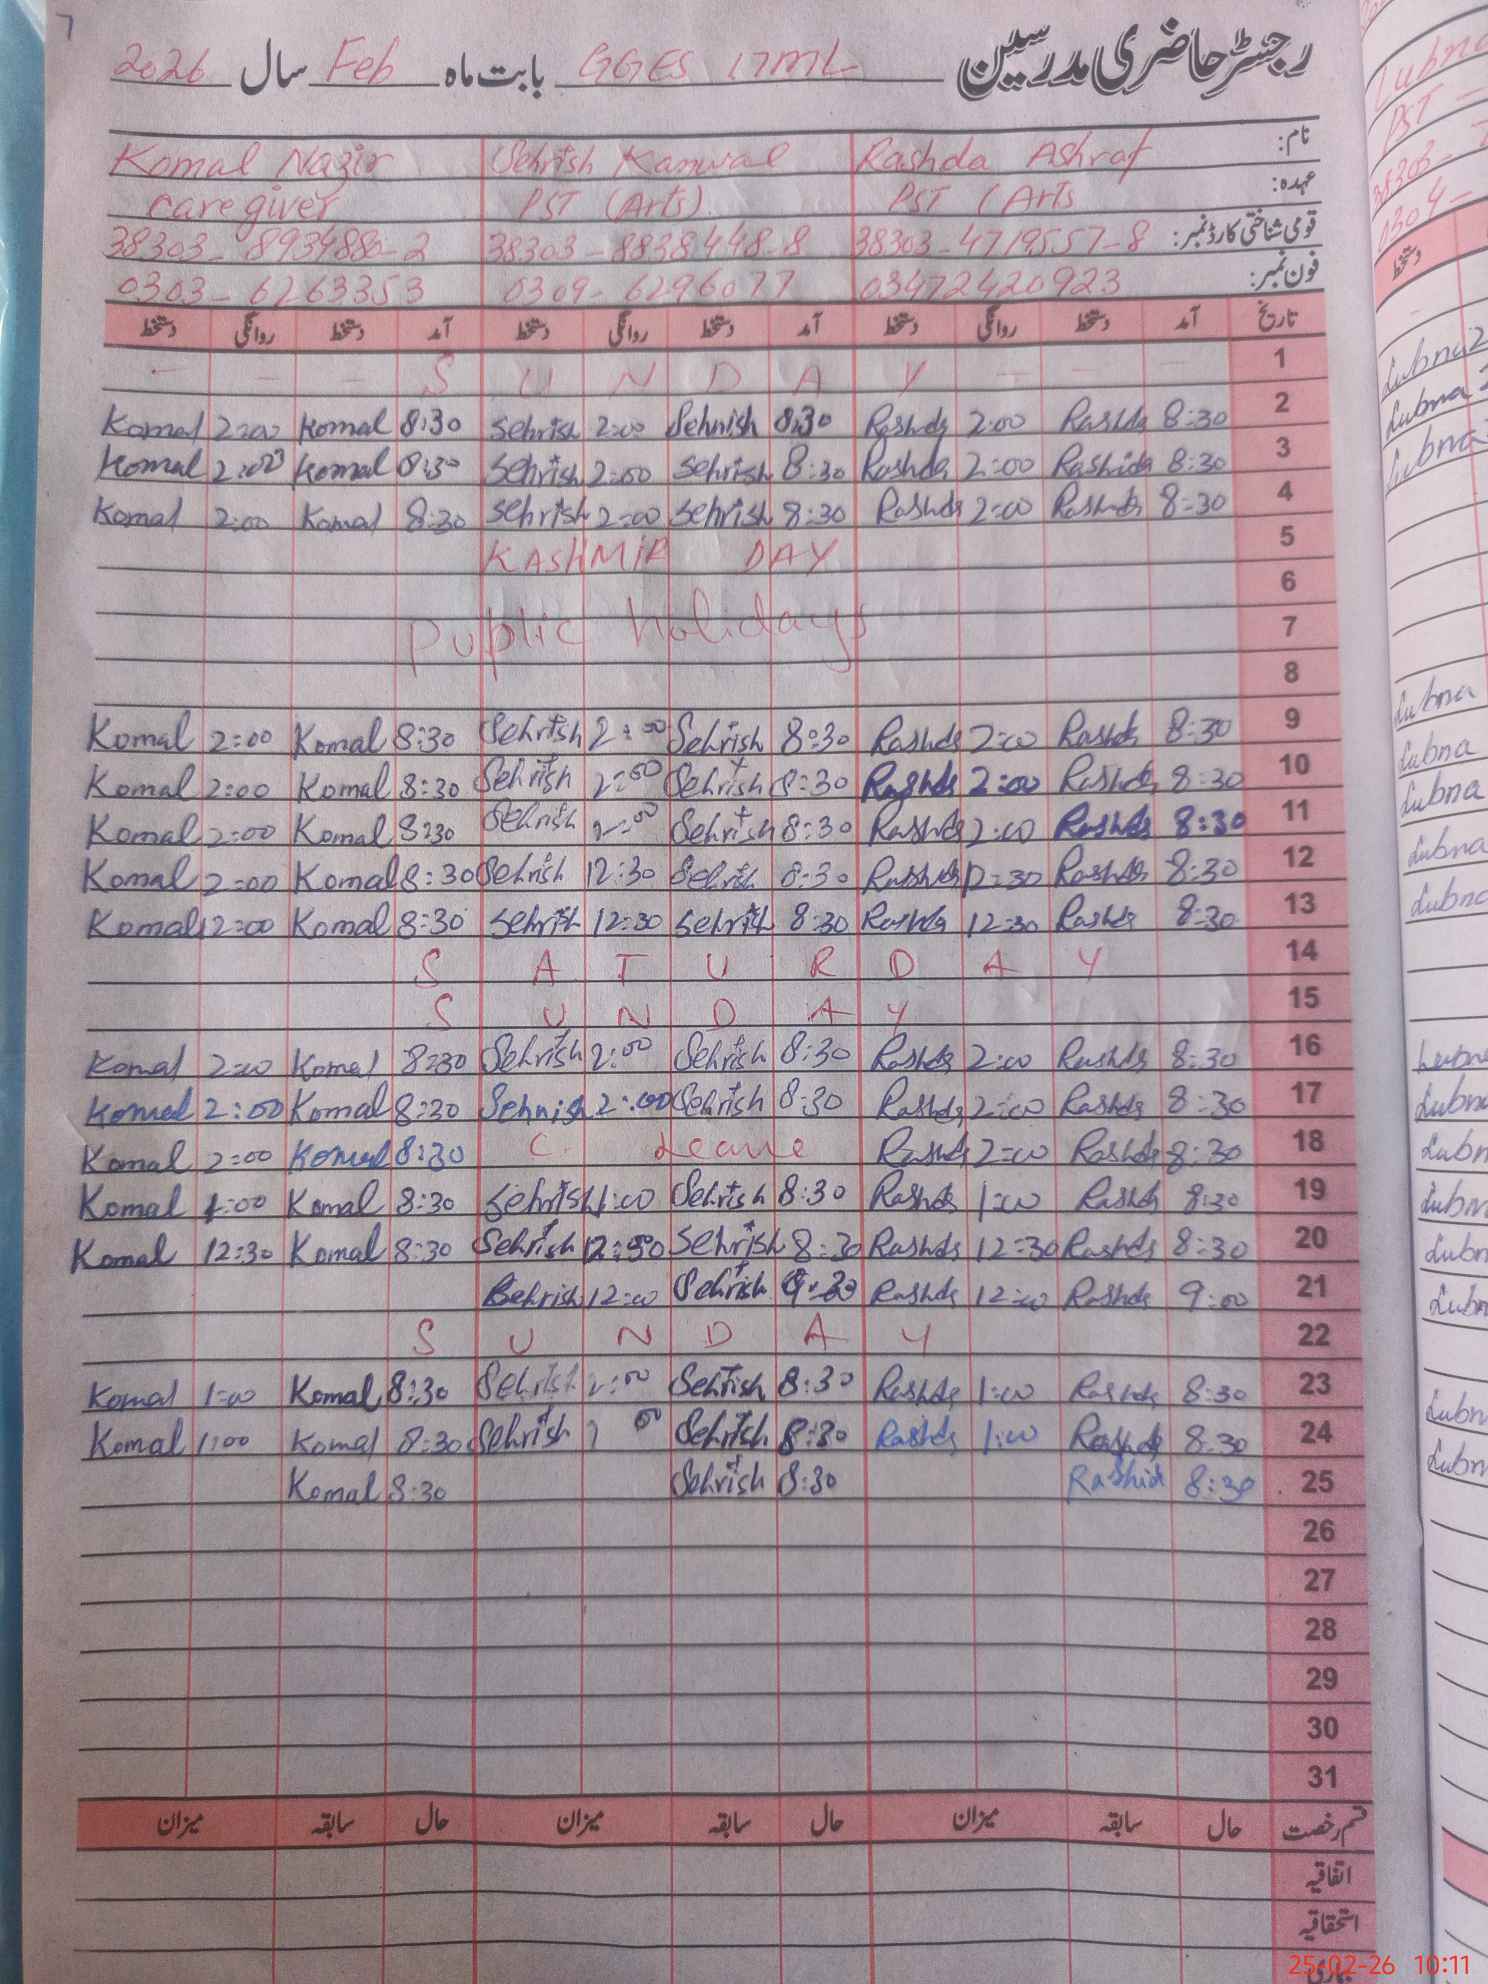 7
رجسٹر حاضری مدرسین GGES 17ML بابت ماہ Feb سال 2026
نام: Rashda Ashraf Sehrish Kanwal Komal Nazir
عہدہ: PST (Arts PST (Arts) caregiver
قومی شناختی کارڈ نمبر: 38303-4719557-8 38303-8838448-8 38303-8934880-2
فون نمبر: 03472420923 0309-6296077 0303-6263353
تاریخ آمد دستخط روانگی دستخط آمد دستخط روانگی دستخط آمد دستخط روانگی دستخط
1 - - - S U N D A Y - - -
2 8:30 Rashda 2:00 Rashda 8:30 Sehrish 2:00 Sehrish 8:30 Komal 2:00 Komal
3 8:30 Rashida 2:00 Rashda 8:30 Sehrish 2:00 Sehrish 8:30 Komal 2:00 Komal
4 8:30 Rashda 2:00 Rashda 8:30 Sehrish 2:00 Sehrish 8:30 Komal 2:00 Komal
5 KASHMIR DAY
6
7 Public holidays
8
9 8:30 Rashda 2:00 Rashda 8:30 Sehrish 2:00 Sehrish 8:30 Komal 2:00 Komal
10 8:30 Rashda 2:00 Rashda 8:30 Sehrish 2:00 Sehrish 8:30 Komal 2:00 Komal
11 8:30 Rashda 2:00 Rashda 8:30 Sehrish 2:00 Sehrish 8:30 Komal 2:00 Komal
12 8:30 Rashda 12:30 Rashda 8:30 Sehrish 12:30 Sehrish 8:30 Komal 2:00 Komal
13 8:30 Rashda 12:30 Rashda 8:30 Sehrish 12:30 Sehrish 8:30 Komal 12:00 Komal
14 S A T U R D A Y
15 S U N D A Y
16 8:30 Rashda 2:00 Rashda 8:30 Sehrish 2:00 Sehrish 8:30 Komal 2:00 Komal
17 8:30 Rashda 2:00 Rashda 8:30 Sehrish 2:00 Sehnish 8:30 Komal 2:00 Komal
18 8:30 Rashda 2:00 Rashda C. Leave 8:30 Komal 2:00 Komal
19 8:30 Rashda 1:00 Rashda 8:30 Sehrish 1:00 Sehrish 8:30 Komal 1:00 Komal
20 8:30 Rashda 12:30 Rashda 8:30 Sehrish Sehrish 8:30 Komal 12:30 Komal
21 9:00 Rashda 12:00 Rashda Sehrish 12:00 Sehrish
22 S U N D A Y
23 8:30 Rashda 1:00 Rashda 8:30 Sehrish Sehrish 8:30 Komal 1:00 Komal
24 8:30 Rashda 1:00 Rashda 8:30 Sehrish Sehrish 8:30 Komal 1:00 Komal
25 8:30 Rashid 8:30 Sehrish 8:30 Komal
26
27
28
29
30
31
قسم رخصت حال سابقہ میزان حال سابقہ میزان حال سابقہ میزان
اتفاقیہ
استحقاقیہ
Lubna
PST -
38303-
0304-
دستخط
Lubna
Lubna
Lubna
Lubna
Lubna
Lubna
Lubna
Lubna
25-02-26 10:11